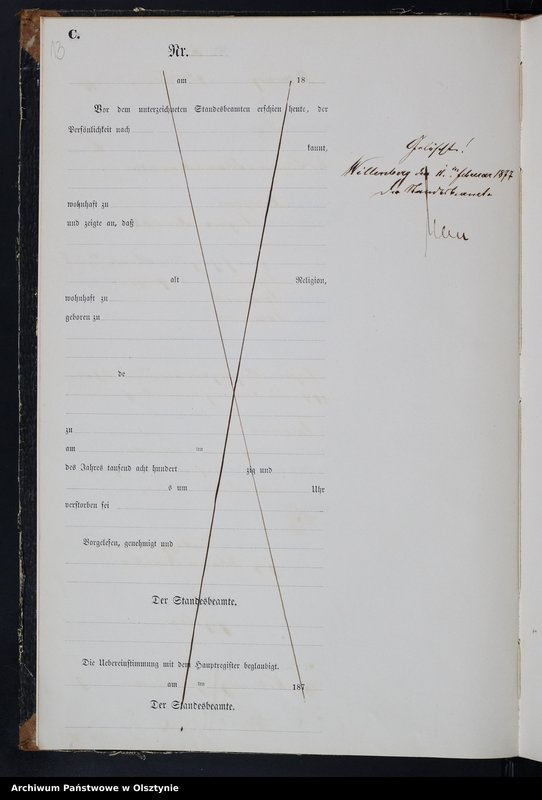 C.
13
Nr.
am 18
Vor dem unterzeichneten Standesbeamten erschien heute, der
Persönlichkeit nach
kannt,
wohnhaft zu
und zeigte an, daß
alt Religion,
wohnhaft zu
geboren zu
de
zu
am ten
des Jahres tausend acht hundert zig und
s um Uhr
verstorben sei
Vorgelesen, genehmigt und
Der Standesbeamte.
Die Uebereinstimmung mit dem Hauptregister beglaubigt.
am ten 187
Der Standesbeamte.
Gelöscht!
Willenberg den Februar 1877
Der Standesbeamte
Archiwum Państwowe w Olsztynie